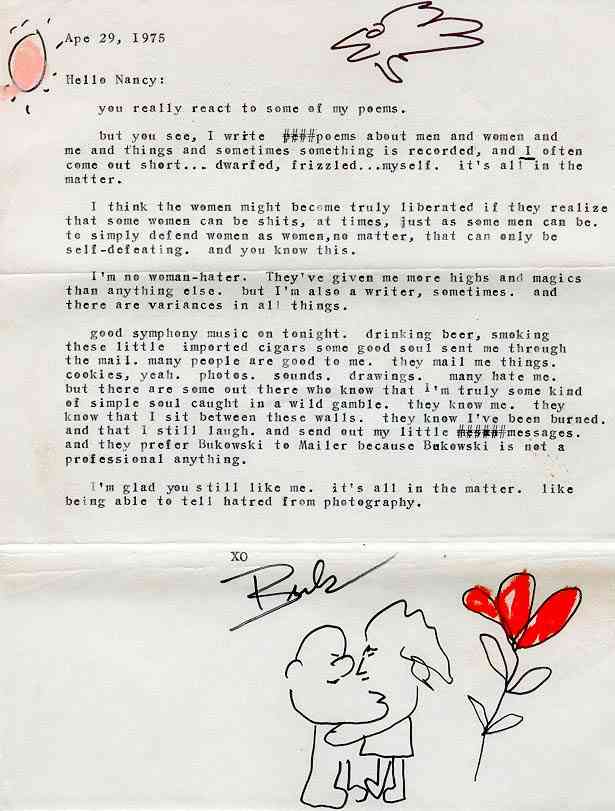 Ape 29, 1975
Hello Nancy:
you really react to some of my poems.
but you see, I write ####poems about men and women and
me and things and sometimes something is recorded, and I often
come out short... dwarfed, frizzled...myself. it's all in the
matter.
I think the women might become truly liberated if they realize
that some women can be shits, at times, just as some men can be.
to simply defend women as women,no matter, that can only be
self-defeating. and you know this.
I'm no woman-hater. They've given me more highs and magics
than anything else. but I'm also a writer, sometimes. and
there are variances in all things.
good symphony music on tonight. drinking beer, smoking
these little imported cigars some good soul sent me through
the mail. many people are good to me. they mail me things.
cookies, yeah. photos. sounds. drawings. many hate me.
but there are some out there who know that I'm truly some kind
of simple soul caught in a wild gamble. they know me. they
know that I sit between these walls. they know I've been burned.
and that I still laugh. and send out my little ######messages.
and they prefer Bukowski to Mailer because Bukowski is not a
professional anything.
I'm glad you still like me. it's all in the matter. like
being able to tell hatred from photography.
XO
Buk